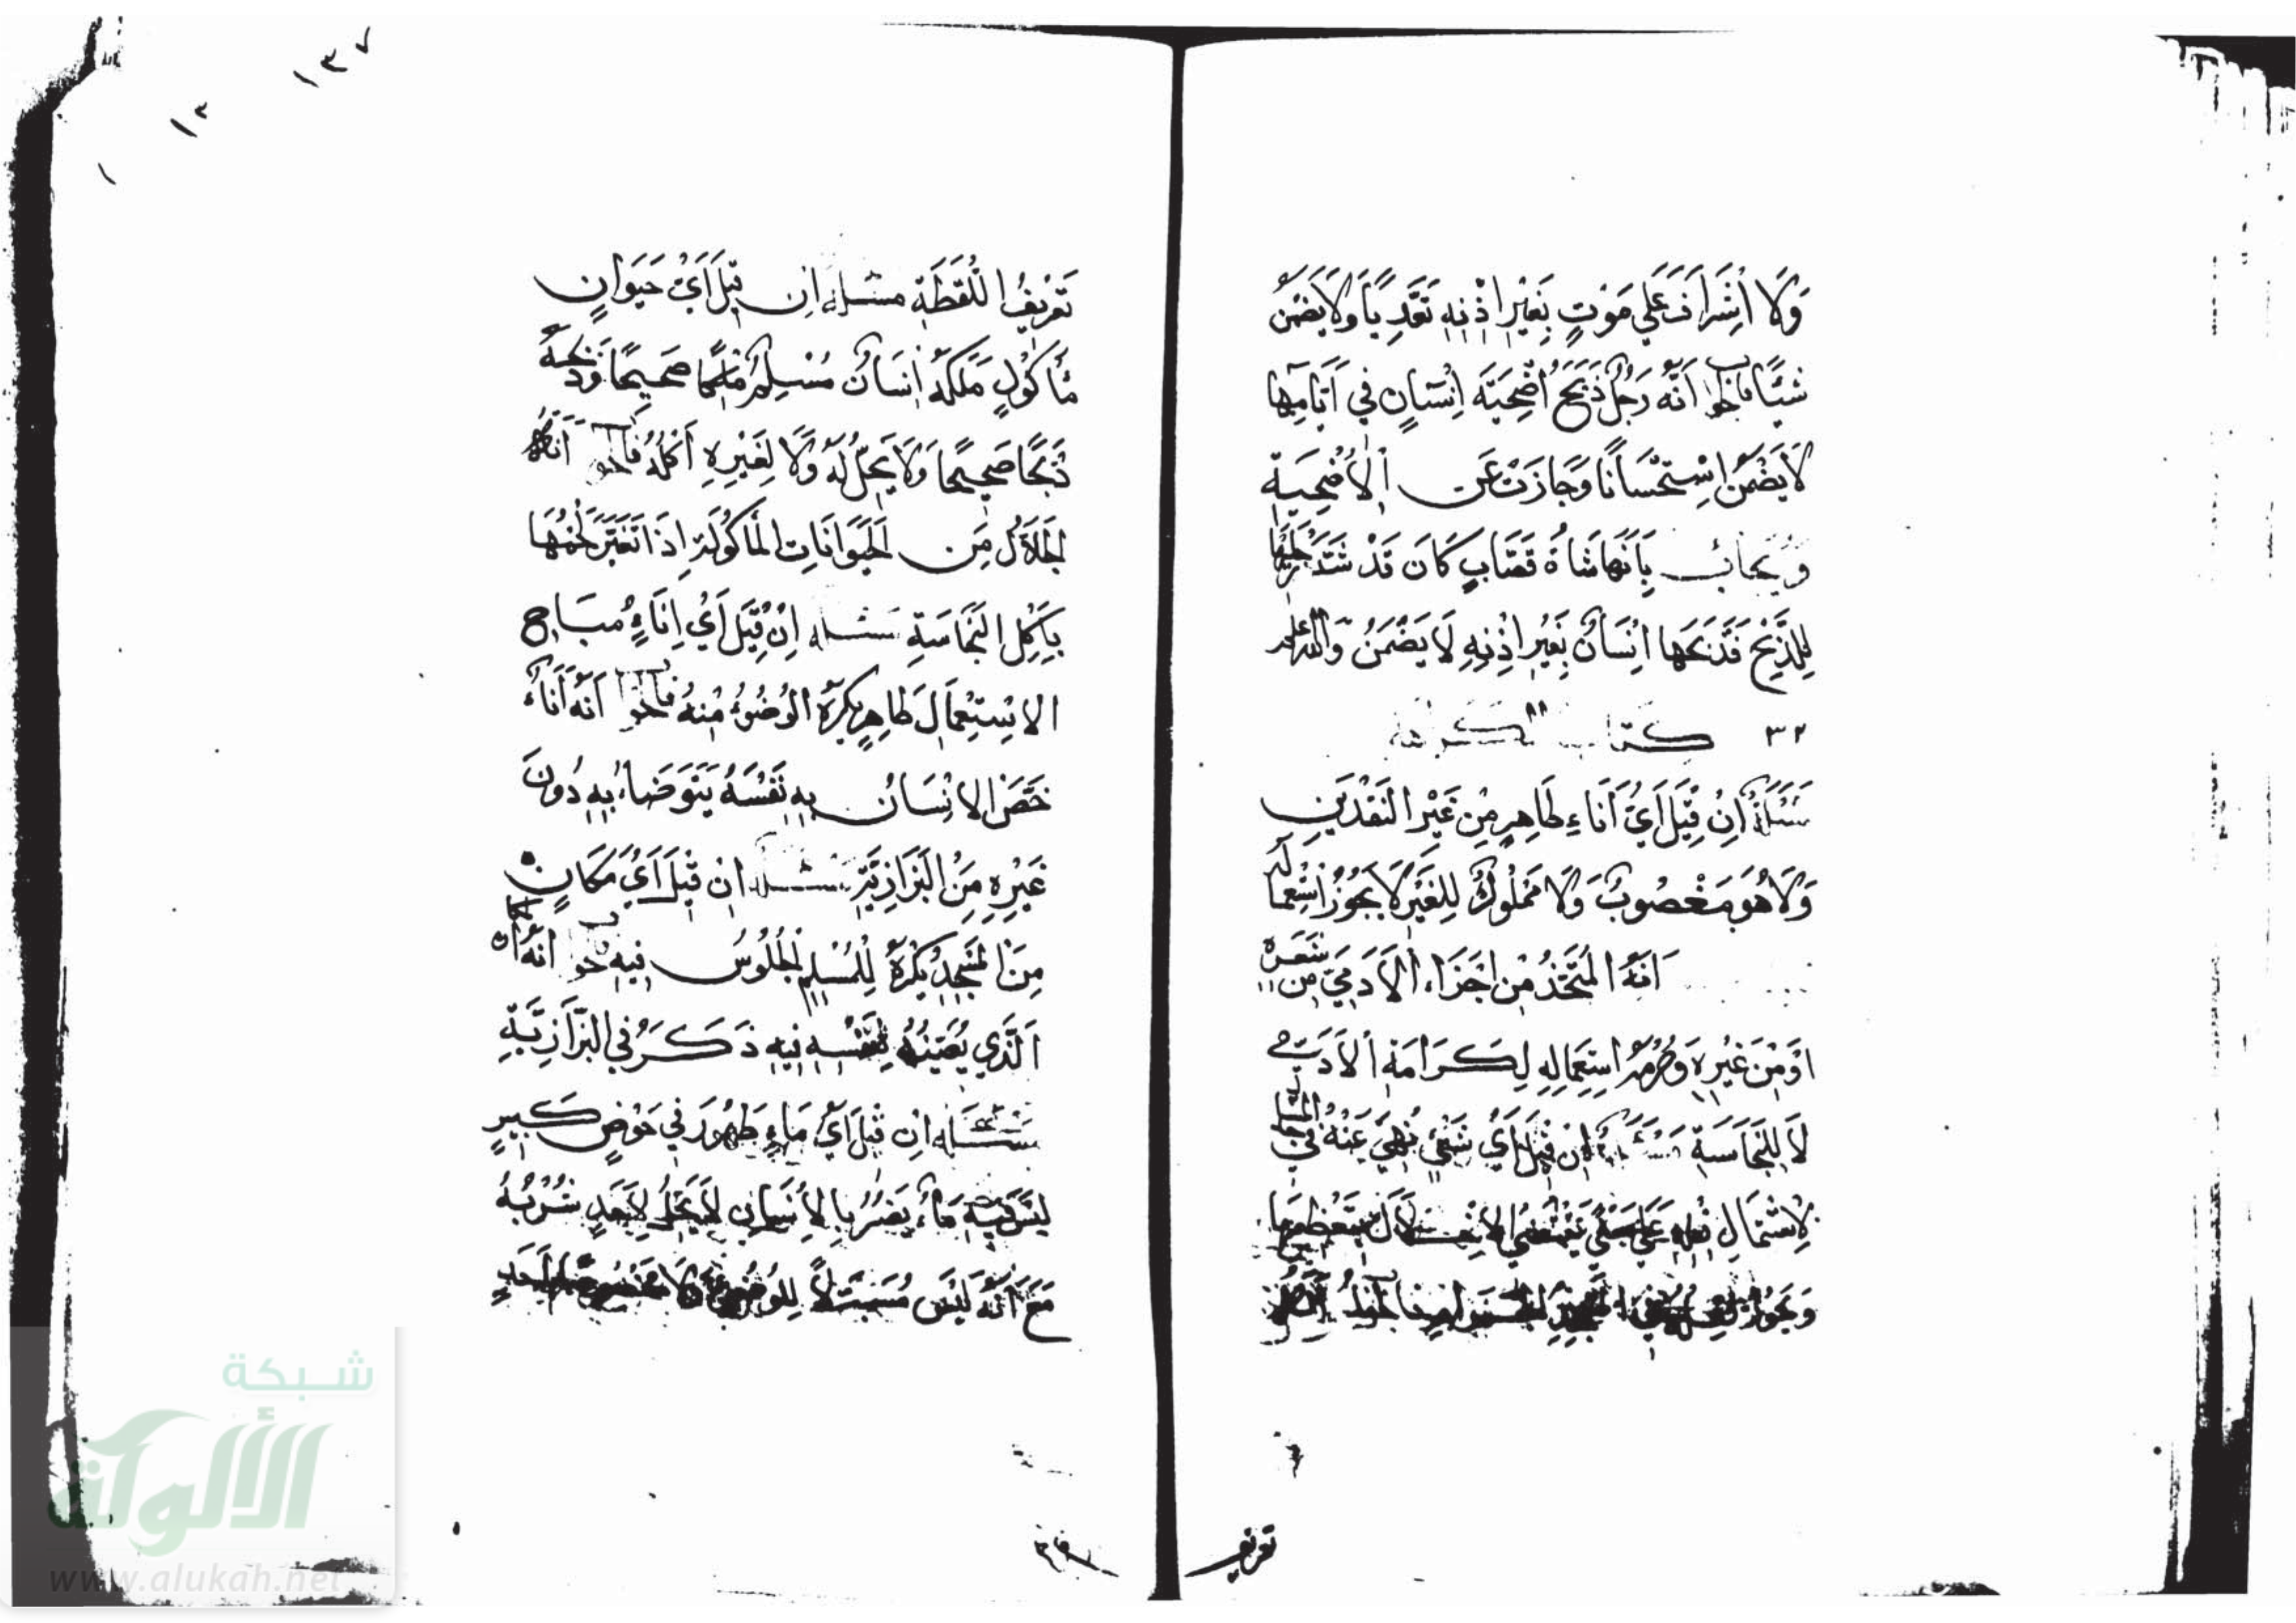 وَلَا اشْرَافَ عَلَى مَوْتٍ بِغَيْرِ اذْنِهِ تَعَدِّيًا وَلَا يَضْمَنُ
شيئًا فالجواب أنَّه رَجُلٌ ذَبَحَ أُضْحِيَّة إنْسَانٍ في أَيَّامِها
لَا يَضْمَنُ اسْتِحْسَانًا وَجَازَتْ عَن الأُضْحِيَة
وَيُجَابُ بِأَنَّهَا شَاةُ قَصَّابٍ كَانَ قَدْ شَدَّ رِجْلَهَا
لِلذَّبْحِ فَذَبَحَها انْسَانٌ بِغَيْرِ اذْنِهِ لَا يَضْمَنُ وَالله اعلم
٣٢ كتاب الكراهة
مَسْئَلَةٌ انْ قِيلَ أَيُّ أَنَاءٍ طَاهِرٍ مِنْ غَيْرِ النَّقْدَيْنِ
وَلَا هُوَ مَغْصُوبٌ وَلَا مَمْلُوكٌ لِلْغَيْرِ لَا يَجُوزُ اسْتِعْمَالُه
أَنَّهُ الْمُتَّخَذُ مِن اجْزَاءِ الآدَمِيّ مِن شَعَرِه
اَوْ مِنْ غَيْرِهِ وَحُرْمَةُ اسْتِعْمَالِهِ لِكَرَامَةِ الآدَمِي
لَا لِلنَّجَاسَةِ مَسْئَلَةٌ إنْ قِيلَ أَيُّ شَيْءٍ نُهِيَ عَنْهُ فِي
لاشْتِمَالِ
وَيَجُوزُ
تعريف
تَعْرِيفُ اللُّقَطَةِ مسئلة إن قِيلَ أَيُّ حَيَوَانٍ
مَأْكُولٍ مَلَكَهُ انْسَانٌ مُسْلِمٌ مِلْكًا صَحِيحًا وَذَبَحَهُ
ذَبْحًا صَحِيحًا وَلَا يَحِلُّ لَهُ وَلَا لِغَيْرِهِ أَكْلُهُ فالجواب أنه
الجَلَّالُ مِن الْحَيَوَانَاتِ الْمَأْكُولَةِ اذَا تَغَيَّرَ لَحْمُهَا
بِأَكْلِ النَّجَاسَةِ مسئلة إنْ قِيلَ أَيُّ إِنَاءٍ مُبَاح
الاسْتِعْمَالِ طَاهِرٍ يُكْرَهُ الْوُضُوءُ مِنْهُ فالجواب أَنَّه أَنَاءٌ
خَصَّ الانْسَانُ بِهِ نَفْسَهُ يَتَوَضَّاءُ بِهِ دُونَ
غَيْرِهِ مِنَ الْبَزَازِيَّةِ مسئلة انْ قِيلَ أَيُّ مَكَانٍ
مِنَ الْمَسْجِدِ يُكْرَهُ لِلْمُسْلِمِ الْجُلُوسُ فِيهِ جواب أَنَّهُ المكان
الَّذِي يُعَيِّنُهُ لِنَفْسِهِ فِيهِ ذَكَرَهُ فِي الْبَزَّازِيَّةِ
مَسْئَلَة انْ قِيلَ أَيُّ مَاءٍ طَهُورٍ فِي حَوْضٍ كَبِيرٍ
لَيْسَ فِيهِ مَا يَضُرُّ بِالأنْسَانِ لَا يَحِلُّ لِأَحَدٍ شُرْبُهُ
مَعَ أَنَّهُ لَيْسَ مُسَبَّلًا لِلْوُضُوءِ وَلَا
١٣٧
١٢
١
شبكة
الألوكة
www.alukah.net